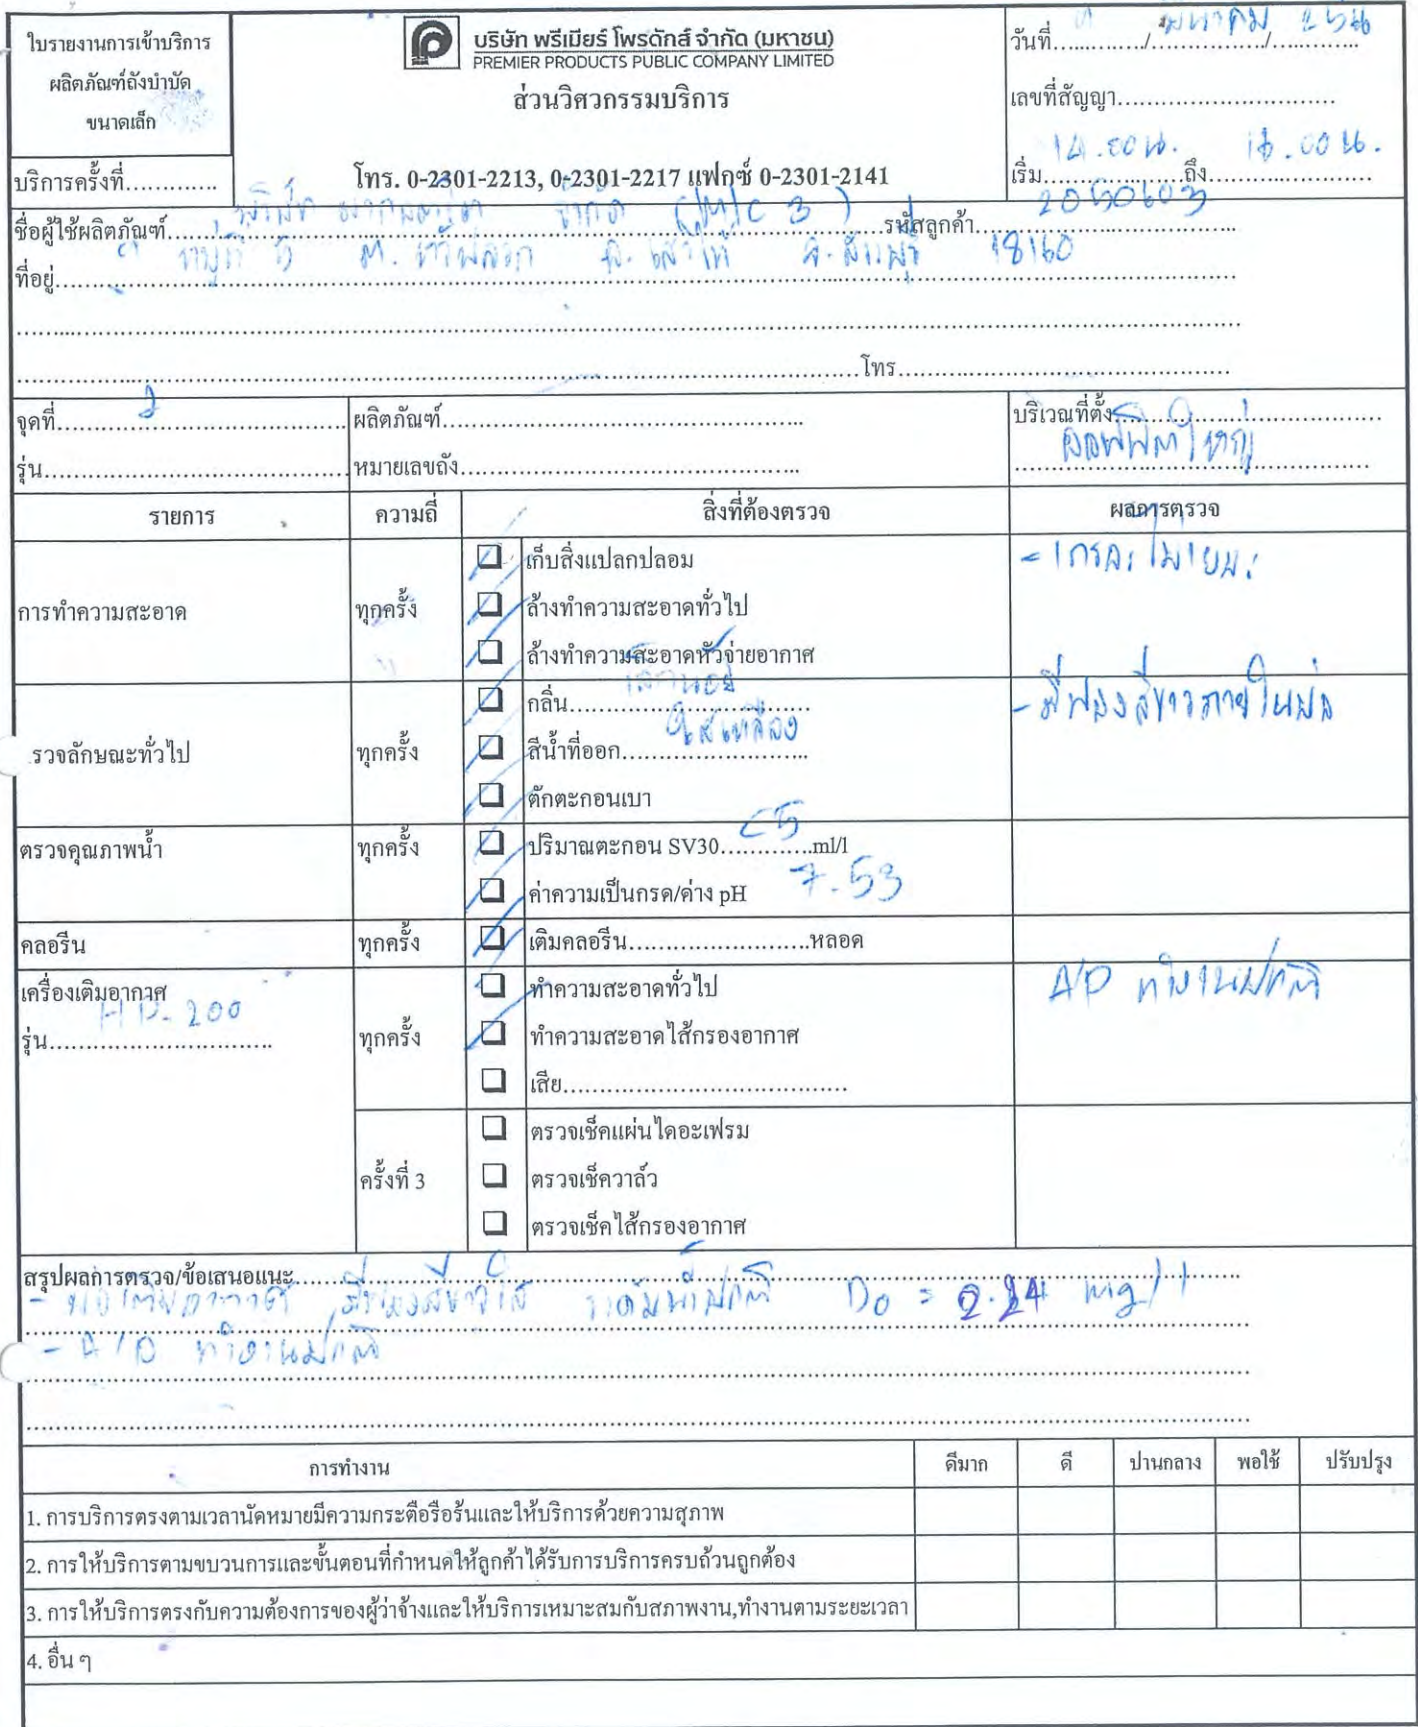 ใบรายงานการเข้าบริการ
ผลิตภัณฑ์ถังบำบัด
ขนาดเล็ก
บริการครั้งที่.............
บริษัท พรีเมียร์ โพรดักส์ จำกัด (มหาชน)
PREMIER PRODUCTS PUBLIC COMPANY LIMITED
ส่วนวิศวกรรมบริการ
โทร. 0-2301-2213, 0-2301-2217 แฟกซ์ 0-2301-2141
วันที่............./................/............
เลขที่สัญญา..............................
14.00 น. 16.00 น.
เริ่ม....................ถึง......................
จำกัด 2050603
ชื่อผู้ใช้ผลิตภัณฑ์....................รหัสลูกค้า....................
9 หมู่ที่ 5 ต. ทับกวาง อ. จ. สระบุรี 18160
ที่อยู่....................
โทร....................
จุดที่ 2
รุ่น....................
ผลิตภัณฑ์....................
หมายเลขถัง....................
บริเวณที่ตั้ง....................
ออฟฟิศใหญ่
รายการ ความถี่ สิ่งที่ต้องตรวจ ผลการตรวจ
การทำความสะอาด ทุกครั้ง
เก็บสิ่งแปลกปลอม
ล้างทำความสะอาดทั่วไป
ล้างทำความสะอาดหัวจ่ายอากาศ
รวจลักษณะทั่วไป ทุกครั้ง
กลิ่น เล็กน้อย
สีน้ำที่ออก ใสเหลือง
ตักตะกอนเบา
- มีฟองสีขาวภายในบ่อ
ตรวจคุณภาพน้ำ ทุกครั้ง
ปริมาณตะกอน SV30.............ml/l
ค่าความเป็นกรด/ค่าง pH 7.53
คลอรีน ทุกครั้ง เติมคลอรีน.........................หลอด
เครื่องเติมอากาศ
รุ่น HP-200
ทุกครั้ง
ทำความสะอาดทั่วไป
ทำความสะอาดไส้กรองอากาศ
เสีย.......................................
A/P ทำงานปกติ
ครั้งที่ 3
ตรวจเช็คแผ่นไดอะเฟรม
ตรวจเช็ควาล์ว
ตรวจเช็คไส้กรองอากาศ
สรุปผลการตรวจ/ข้อเสนอแนะ....................
- บ่อเติมอากาศ มีฟองสีขาวใส ระดับน้ำปกติ DO = 2.24 mg/l
- A/P ทำงานปกติ
การทำงาน ดีมาก ดี ปานกลาง พอใช้ ปรับปรุง
1. การบริการตรงตามเวลานัดหมายมีความกระตือรือร้นและให้บริการด้วยความสุภาพ
2. การให้บริการตามขบวนการและขั้นตอนที่กำหนดให้ลูกค้าได้รับการบริการครบถ้วนถูกต้อง
3. การให้บริการตรงกับความต้องการของผู้ว่าจ้างและให้บริการเหมาะสมกับสภาพงาน,ทำงานตามระยะเวลา
4. อื่น ๆ